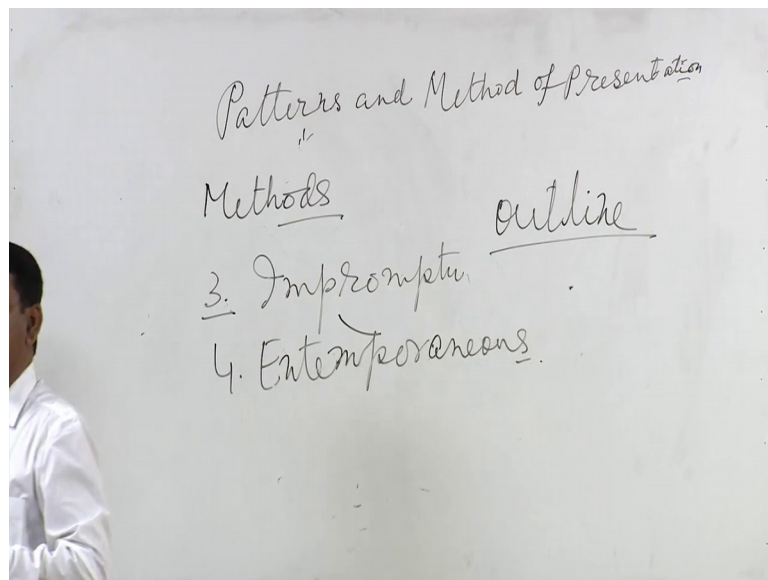 Patterns and Method of Presentation
Methods
outline
3. Impromptu
4. Extemporaneous.